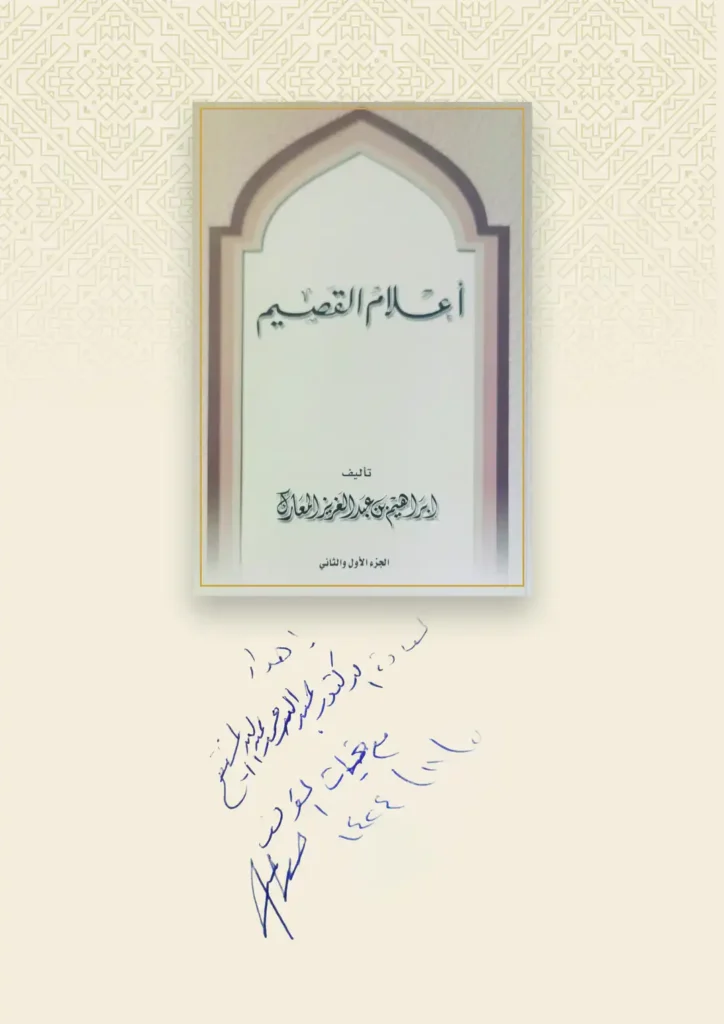 أعلام القصيم
تأليف
ابراهيم بن عبدالعزيز المعارك
الجزء الأول والثاني
إهداء
لسعادة
الدكتور عبدالله
مع تحيات المؤلف